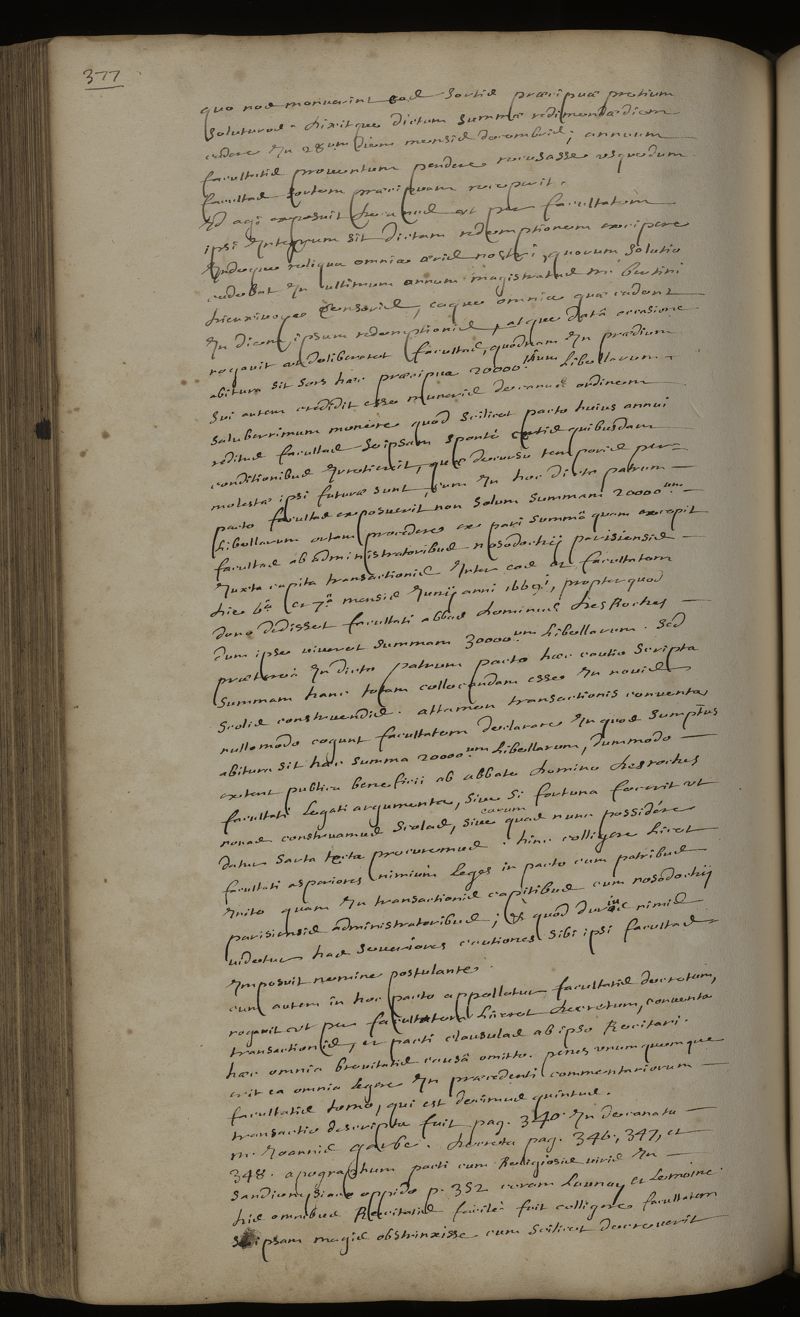 377
quo nos monuerint eos sortis præcipuæ pretium
soluturos. dixitque dictum summæ redimendæ diem
cadere in 28um diem mensis decembris; annuum
facultatis proventum pendere recusasse usquedum
facultas sortem præcipuam receperit.
Id ago exposuit decanus ut per facultatem
ipsi integrum sit dictam redemptionem excipere
indeque reliqua omnia æris nostri, quorum solutio
cadebat in ultimum annum magistratus mi. bertini
dieuxivoye censoris, eaque omnia quæ cadent
in diem ipsum redemptionis, atque datâ occasione
rogavit ut deliberaret facultas, quodnam in prædium
abitura sit sors hæc præcipua 20000 libellarum
sui autem credidit esse muneris decanus ordinem
saluberrimum monere quod scilicet pacto huius anni
reditus facultas seipsam sponte certis quibusdam
conditionibus irretierit, quæ decursu temporis per=
molestæ ipsi futuræ sunt, cum in hoc dicto patrum
pacto facultas exposuerit non solum summam 20000um
libellarum ortam procedere ex pari summâ quam excepit
facultas ab administratoribus nosodochij parisiensis
iuxta capita transactionis inter eos et facultatem
die 6a et 7a mensis Junij anni 1669i, propter quod
dono dedisset facultati abbas dominus des Roches
dum ipse viveret summam 30000um libellarum. sed
præterea in dicto patrum pacto hæc cautio scripta
summam hanc totam collocandam esse in novis
scolis construendis. attamen transactionis conventa
nullo modo cogunt facultatem declarare in quos sumptus
abitura sit hæc summa 20000um libellarum, dummodo
extent publica beneficii ab abbate domino desroches
facultati legati argumenta, sive si fortuna faverit ut
novas construamus scolas, sive earum quas nunc possidere
datur sarta tecta procuremus. hinc colligere licet
facultati asperiores nimium leges in pacto cum patribus
inito quam in transactionis capitibus cum nosodochij
parisiensis administratoribus; et quod durius nimis
videtur has severiores cautiones sibi ipsi facultas
imposuit nemine postulante.
cum autem in hoc pacto appelletur facultatis decretum,
rogavit ut per facultatem liceret decretum, conventa
transactionis, et pacti clausulas ab ipso recitari.
hæc omnia brevitatis causâ omitto. penes unumquemque
erit ea omnia legere in præcedenti commentariorum
facultatis tomo, qui est decimus quintus.
transactio descripta fuit pag. 340 in decanatu
m. Joannis garbe. decreta pag. 346, 347, et
348. apographum pacti cum Religiosis viris in
sandionysiaco oppido p. 352 coram Launay et Lemoine.
his omnibus Recitatis facile fuit colligere facultatem
seipsam magis obstrinxisse cum scilicet decreverit